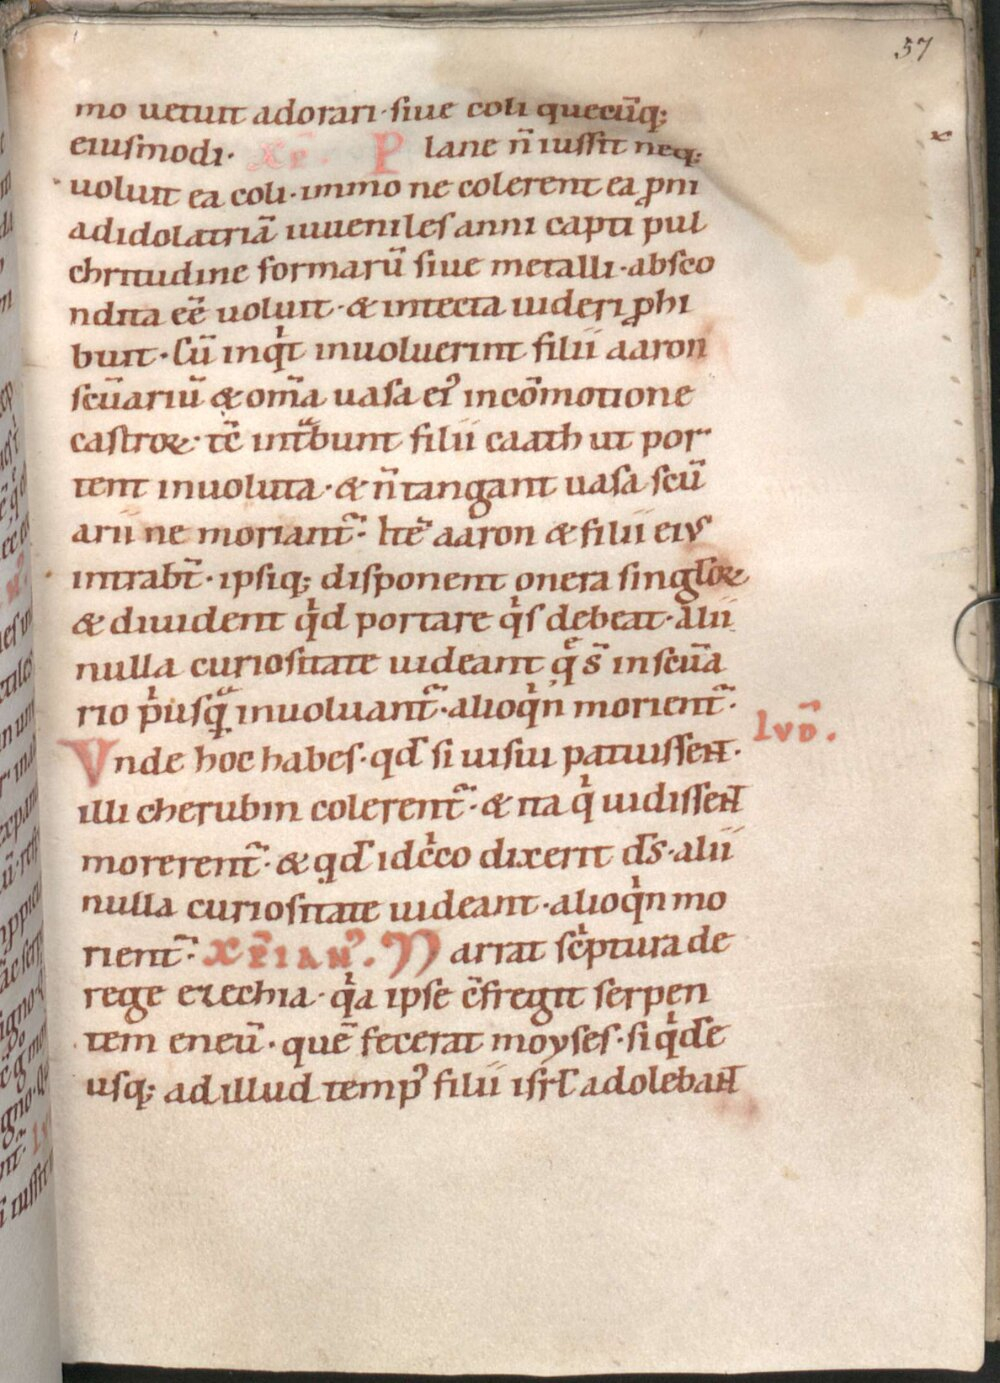 57
mo uetuit adorari · siue coli quecūq;
eiusmodi · xp̄. Plane n̄ iussit neq;
uoluit ea coli · immo ne colerent ea ꝓni
ad idolatriā iuueniles anni capti pul
chritudine formarū siue metalli · absco
ndita eē uoluit · & intecta uideri ꝓhi
buit · Cū inqͥt inuoluerint filii aaron
scūariū & om̄a uasa eiꝰ in cōmotione
castroꝝ · tc̄ intᵃbunt filii caath ut por
tent inuoluta · & n̄ tangant uasa scū
arii ne moriant᷑ · Itē aaron & filii eiꝰ
intrab̄t · ipsiq; disponent onera singl̄oꝝ
& diuident qͥd portare qͥs debeat · alii
nulla curiositate uideant qͤ s̄ in scūa
rio pͥusqᵃ inuoluant᷑ · alioqͥn morient᷑ ·
Vnde hoc habes · qđ si uisui patuissent · lvD̄.
illi cherubin colerent᷑ · & ita qͥ uidissent
morerent᷑ · & qđ idcͥco dixerit dс̄ · alii
nulla curiositate uideant · alioqͥn mo
rient᷑ · xp̄ianꝰ. Narrat scͥptura de
rege ezechia · qͥa ipse c̄fregit serpen
tem eneū · quē fecerat moyses · siqͥdē
usq; ad illud tempꝰ filii isrł adolebant